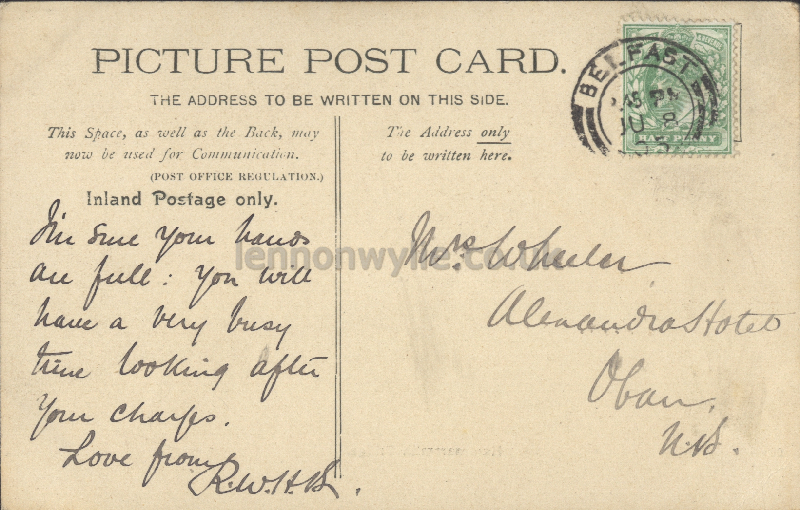 PICTURE POST CARD.
THE ADDRESS TO BE WRITTEN ON THIS SIDE.
This Space, as well as the Back, may
now be used for Communication.
(POST OFFICE REGULATION.)
Inland Postage only.
The Address only
to be written here.
BELFAST
JU 8
05
HALF PENNY
I'm sure your hands
are full: You will
have a very busy
time looking after
your charges.
Love from
R.W.H.B.
Mrs Wheeler
Alexandra Hotel
Oban.
N.B.
lennonwylie.co.uk